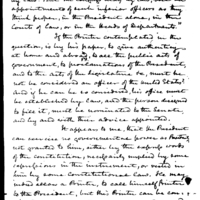 appointments of such inferior officers as they
think proper, in the President alone, in the
Courts of Law, or in the Heads of Departments."
If the Printer contemplated in this
question, is by his paper, to give authenticity
at home and abroad, to all the public acts of
government, to proclamations of the President,
and to the acts of the Legislature, &c, must
not be considered an officer of the United States?
And if he can be so considered, his office must
be established by Law, and the person designed
to fill it, must be nominated to the Senate,
and by and with their advice appointed.
It appears to me, that the President
can exercise no governmental power or
not granted to him, either by the express words
of the Constitution, necessarily implied by some
expressions in the instrument, or vested in
him by some Constitutional Law. He may
indeed allow a Printer, to call himself Printer
to the President, but this Printer can be